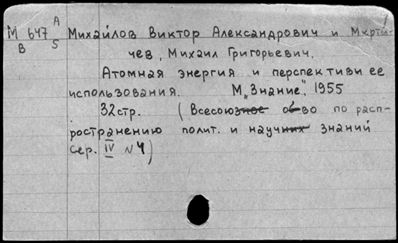 М 647 А Михайлов Виктор Александрович и Мкрты-
В 5 чев, Михаил Григорьевич.
Атомная энергия и перспективи ее
использования. М„Знание", 1955
32стр. (Всесоюзное об-во по расп-
ространению полит. и научных знаний
сер. IV №4)